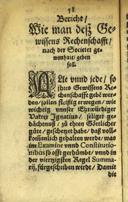 78
Bericht/
Wie man deß Ge-
wissens Rechenschafft/
nach der Societet ge-
wonheit geben
soll.
Alle vnnd jede/ so
deß Gewissens Re-
chenschafft geben wer-
den/ sollen fleissig erwegen/ wie
wichtig vnser Ehrwürdiger
Vatter Ignatius/ seliger ge-
dächtnuß/ zu
gute/ geschetzet hab/ daß
gehalten werde: was
im Examine vnnd Constitutio-
nibus so offt gehandlet/ vnnd in
der viertzigsten Regel Summa-
rij, fürgeschriben werde/ Damit
die